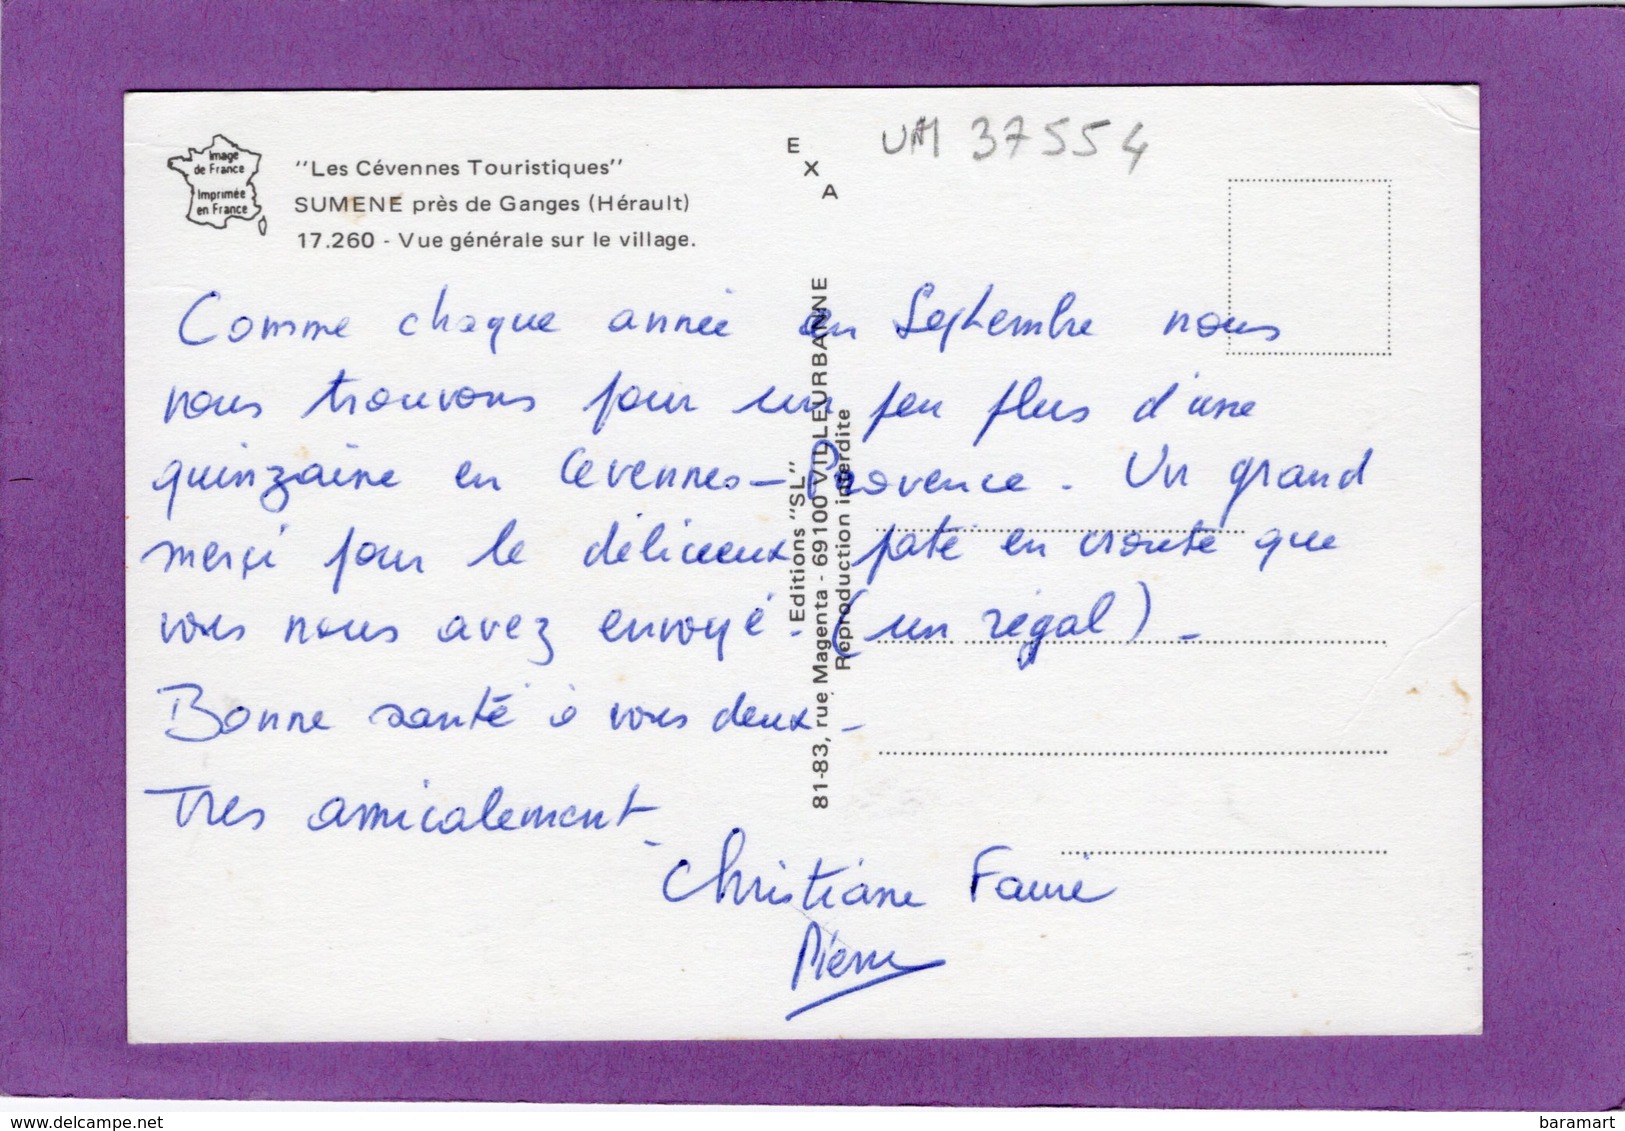 Image
de France
Imprimée
en France
"Les Cévennes Touristiques"
SUMENE près de Ganges (Hérault)
17.260 - Vue générale sur le village.
EXA
UM 37554
Comme chaque année en Septembre nous
nous trouvons pour un peu plus d'une
quinzaine en Cevennes - Provence. Un grand
merci pour le délicieux paté en croute que
vous nous avez envoyé. (un régal) -
Bonne santé à vous deux -
Tres amicalement -
Christiane Faure
Pierre
Editions "SL"
81-83, rue Magenta - 69100 VILLEURBANNE
Reproduction interdite
www.delcampe.net
baramart